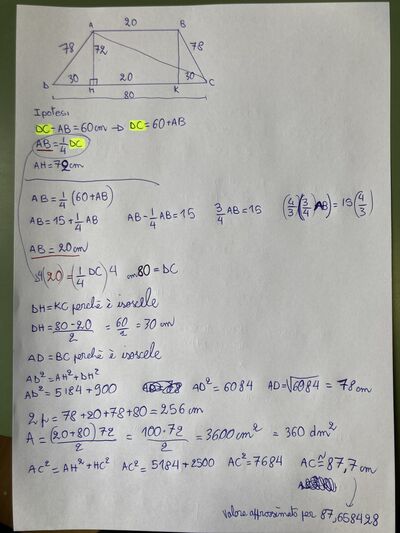 20
A B
78 72 78
30 20 30
D H K C
80
Ipotesi
DC - AB = 60 cm → DC = 60 + AB
AB = 1/4 DC
AH = 72 cm
AB = 1/4 (60 + AB)
AB = 15 + 1/4 AB AB - 1/4 AB = 15 3/4 AB = 15 (4/3)(3/4 AB) = 15 (4/3)
AB = 20 cm
4 (20) = (1/4 DC) 4 cm 80 = DC
DH = KC perchè è isoscele
DH = 80 - 20 / 2 = 60 / 2 = 30 cm
AD = BC perchè è isoscele
AD² = AH² + DH²
AD² = 5184 + 900 AD² = 6084 AD = √6084 = 78 cm
2p = 78 + 20 + 78 + 80 = 256 cm
A = (20 + 80) 72 / 2 = 100 · 72 / 2 = 3600 cm² = 360 dm²
AC² = AH² + HC² AC² = 5184 + 2500 AC² = 7684 AC ≅ 87,7 cm
valore approssimato per 87,658428